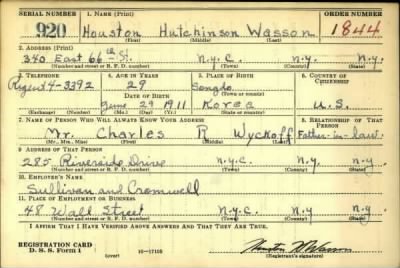 SERIAL NUMBER 1. NAME (Print) ORDER NUMBER
920 Houston Hutchinson Wasson 1844
(First) (Middle) (Last)
2. ADDRESS (Print)
340 East 66th St. N.Y.C. N.Y. N.Y.
(Number and street or R. F. D. number) (Town) (County) (State)
3. TELEPHONE 4. AGE IN YEARS 5. PLACE OF BIRTH 6. COUNTRY OF CITIZENSHIP
29 Songdo
Regent 4-3392 DATE OF BIRTH (Town or county)
June 29 1911 Korea U.S.
(Exchange) (Number) (Mo.) (Day) (Yr.) (State or country)
7. NAME OF PERSON WHO WILL ALWAYS KNOW YOUR ADDRESS 8. RELATIONSHIP OF THAT PERSON
Mr. Charles R Wyckoff Father-in-law
(Mr., Mrs., Miss) (First) (Middle) (Last)
9. ADDRESS OF THAT PERSON
285 Riverside Drive N.Y.C. N.Y. N.Y
(Number and street or R. F. D. number) (Town) (County) (State)
10. EMPLOYER'S NAME
Sullivan and Cromwell
11. PLACE OF EMPLOYMENT OR BUSINESS
48 Wall Street N.Y.C. N.Y. N.Y.
(Number and street or R. F. D. number) (Town) (County) (State)
I AFFIRM THAT I HAVE VERIFIED ABOVE ANSWERS AND THAT THEY ARE TRUE.
REGISTRATION CARD
D. S. S. Form 1 (over) 16—17105 (Registrant's signature)